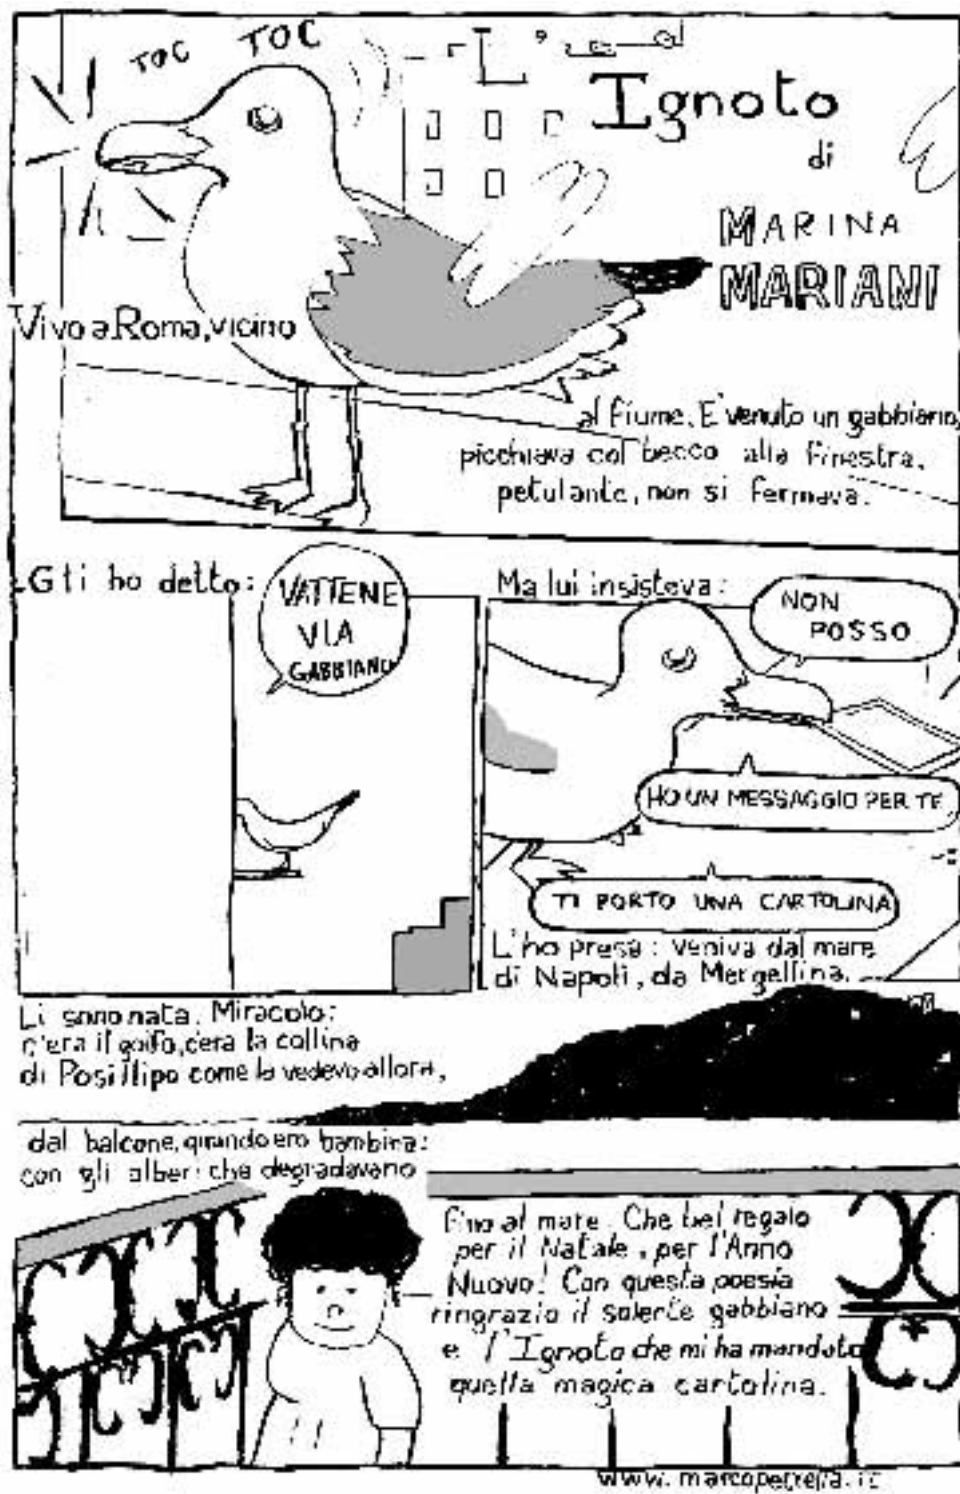 TOC TOC
Ignoto
di
MARINA
MARIANI
Vivo a Roma, vicino
al fiume. E' venuto un gabbiano,
picchiava col becco alla finestra,
petulante, non si fermava.
Gli ho detto:
VATTENE
VIA
GABBIANO
Ma lui insisteva:
NON
POSSO
HO UN MESSAGGIO PER TE
TI PORTO UNA CARTOLINA
L'ho presa: veniva dal mare
di Napoli, da Mergellina.
Lì sono nata. Miracolo:
c'era il golfo, c'era la collina
di Posillipo come la vedevo allora,
dal balcone, quando ero bambina:
con gli alberi che degradavano
fino al mare. Che bel regalo
per il Natale, per l'Anno
Nuovo! Con questa poesia
ringrazio il solerte gabbiano
e l'Ignoto che mi ha mandato
quella magica cartolina.
www.marcopetrella.it